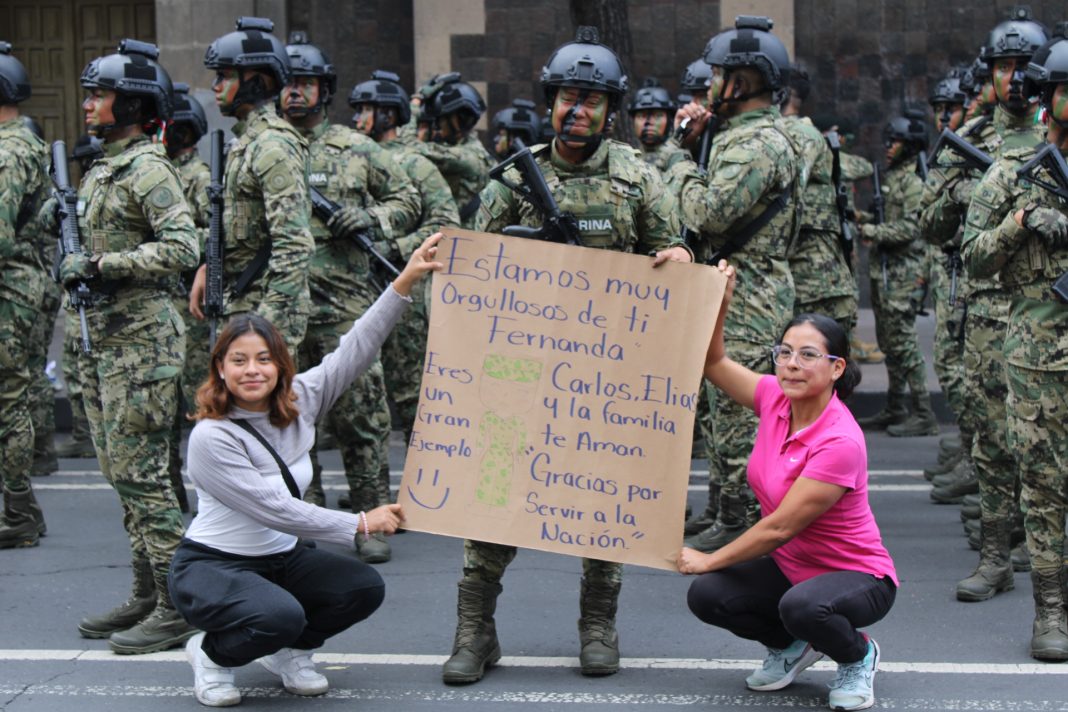 RINA
Estamos muy
Orgullosos de ti
Fernanda"
Eres
un
Gran
Ejemplo
Carlos, Elias
y la familia
te Aman.
Gracias por
Servir a la
Nación."